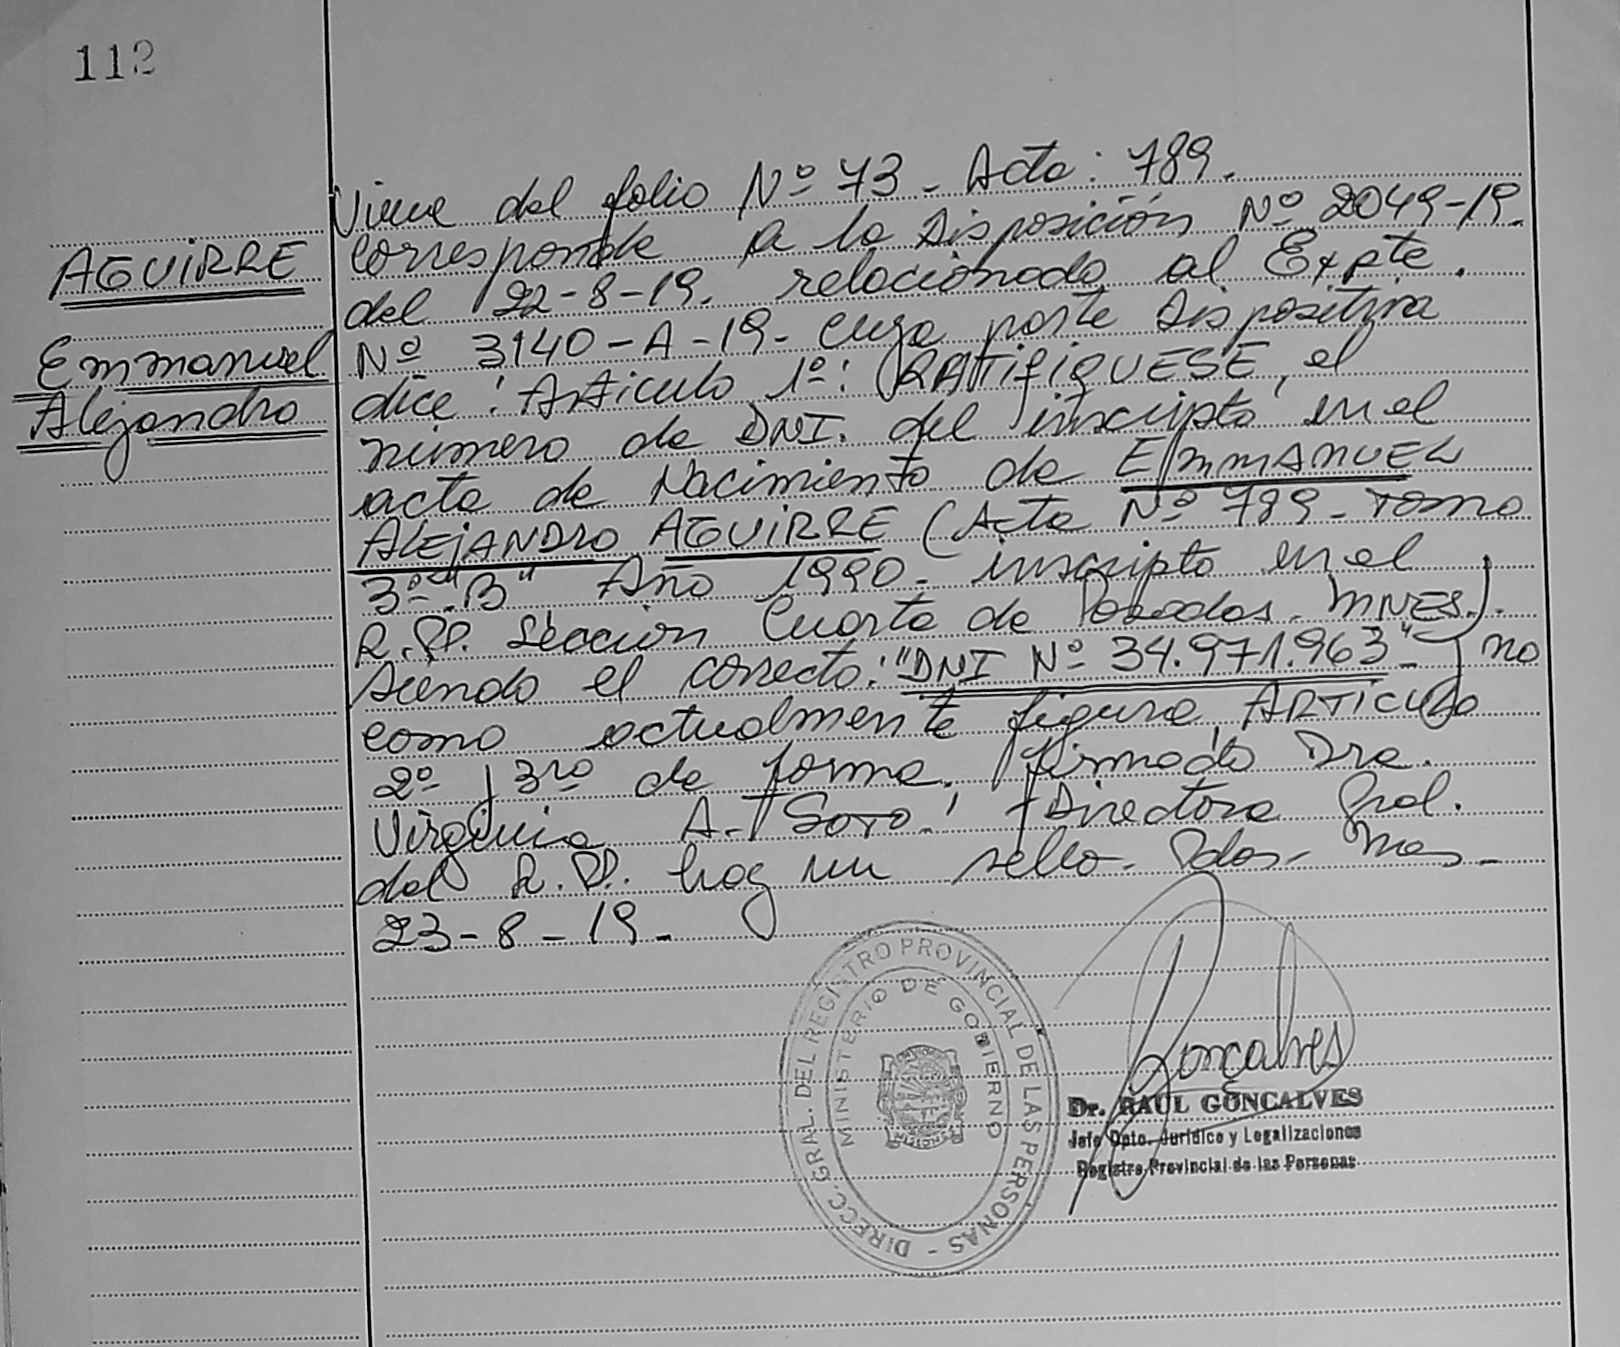 112
AGUIRRE
Emmanuel
Alejandro
Viene del folio Nº 73 - Acta: 789.
corresponde a la Disposición Nº 2049-19.
del 22-8-19. relacionado al Expte.
Nº 3140-A-19- cuya parte dispositiva
dice: Articulo 1º: RATIFIQUESE, el
número de DNI. del inscripto en el
acta de Nacimiento de EMMANUEL
ALEJANDRO AGUIRRE (Acta Nº 789 - Tomo
3º "B" Año 1990- inscripto en el
R.P.P. Sección Cuarta de Posadas. MNES.).
siendo el correcto: "DNI Nº 34.971.963"- y no
como actualmente figura, ARTICULO
2º y 3ro de forma. firmado Dra.
Virginia A. Soto. Directora Gral.
del R.P.P. hay un sello. Pdas- Mnes-
23-8-19-
DIRECC. GRAL. DEL REGISTRO PROVINCIAL DE LAS PERSONAS -
MINISTERIO DE GOBIERNO
Goncalves
Dr. RAUL GONCALVES
Jefe Dpto. Jurídico y Legalizaciones
Registro Provincial de las Personas